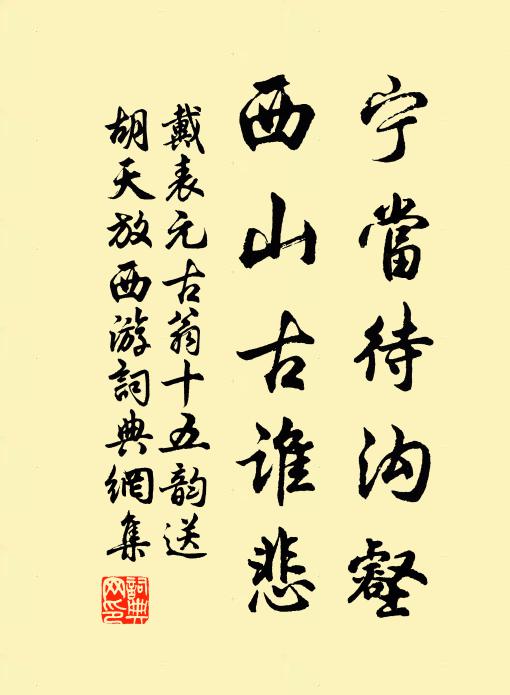 宁當待沟壑
西山古谁悲
戴表元古翁十五韵送
胡天放西游詞典網集
詞典網印